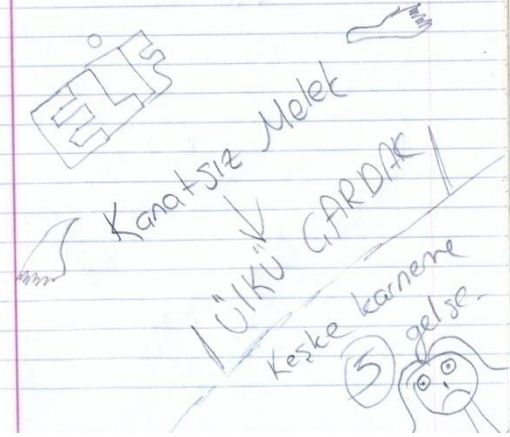 ELİF
Kanatsız Melek
ÜLKÜ GARDAK
Keşke karneme
5 gelse.